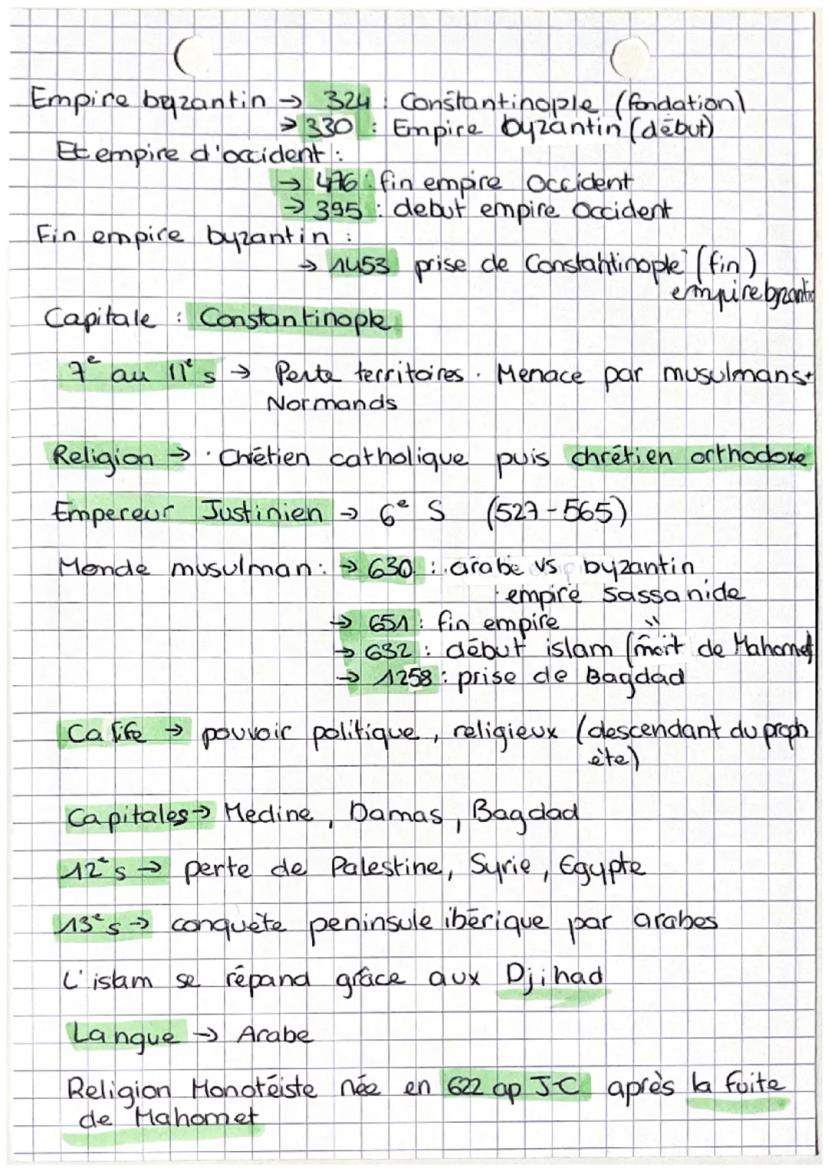 Empire byzantin → 324 : Constantinople (fondation)
→ 330 : Empire byzantin (début)
Et empire d'occident :
→ 476 : fin empire Occident
→ 395 : debut empire Occident
Fin empire byzantin :
→ 1453 prise de Constantinople (fin)
empire byzantin
Capitale : Constantinople
7e au 11e s → Perte territoires. Menace par musulmans+
Normands
Religion → · Chrétien catholique puis chrétien orthodoxe
Empereur Justinien → 6e S (527-565)
Monde musulman : → 630 : arabe vs byzantin
empire Sassanide
→ 651 : fin empire "
→ 632 : début islam (mort de Mahomet
→ 1258 : prise de Bagdad
Calife → pouvoir politique, religieux (descendant du proph
ète)
Capitales → Medine, Damas, Bagdad
12e s → perte de Palestine, Syrie, Egypte
13e s → conquète peninsule ibérique par arabes
L'islam se répand grâce aux Djihad
Langue → Arabe
Religion Monotéiste née en 622 ap J-C après la fuite
de Mahomet